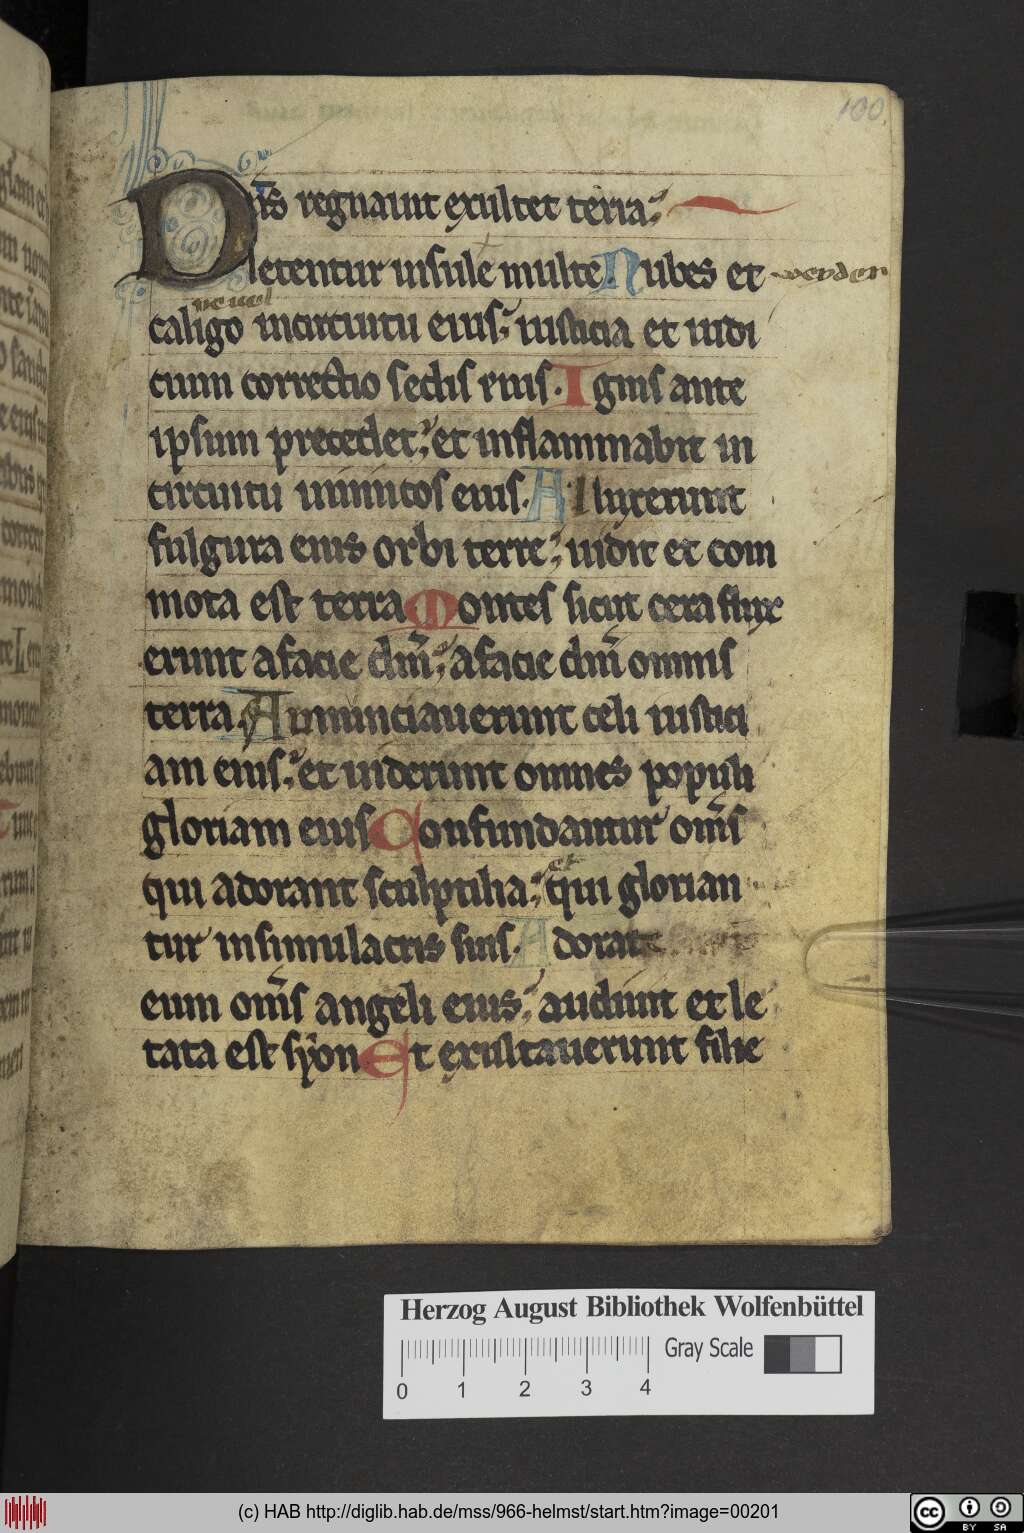 100
Dn̄s regnauit exultet terra
letentur insule multe Nubes et werder
neuel
caligo incircuitu eius; iusticia et iudi
cium correctio sedis eius. Ignis ante
ipsum precedet; et inflammabit in
circuitu inimicos eius. Alluxerunt
fulgura eius orbi terre; uidit et com
mota est terra Montes sicut cera flux
erunt afacie dn̄i; afacie dn̄i omnis
terra. Annunciauerunt celi iustici
am eius; et uiderunt omnes populi
gloriam eius Confundantur om̄s
et
qui adorant sculptilia; qui glorian
tur insimulacris suis. Adorate
eum om̄s angeli eius; audiuit et le
tata est syon Et exultauerunt filie
Herzog August Bibliothek Wolfenbüttel
Gray Scale
0 1 2 3 4
(c) HAB http://diglib.hab.de/mss/966-helmst/start.htm?image=00201
cc BY SA